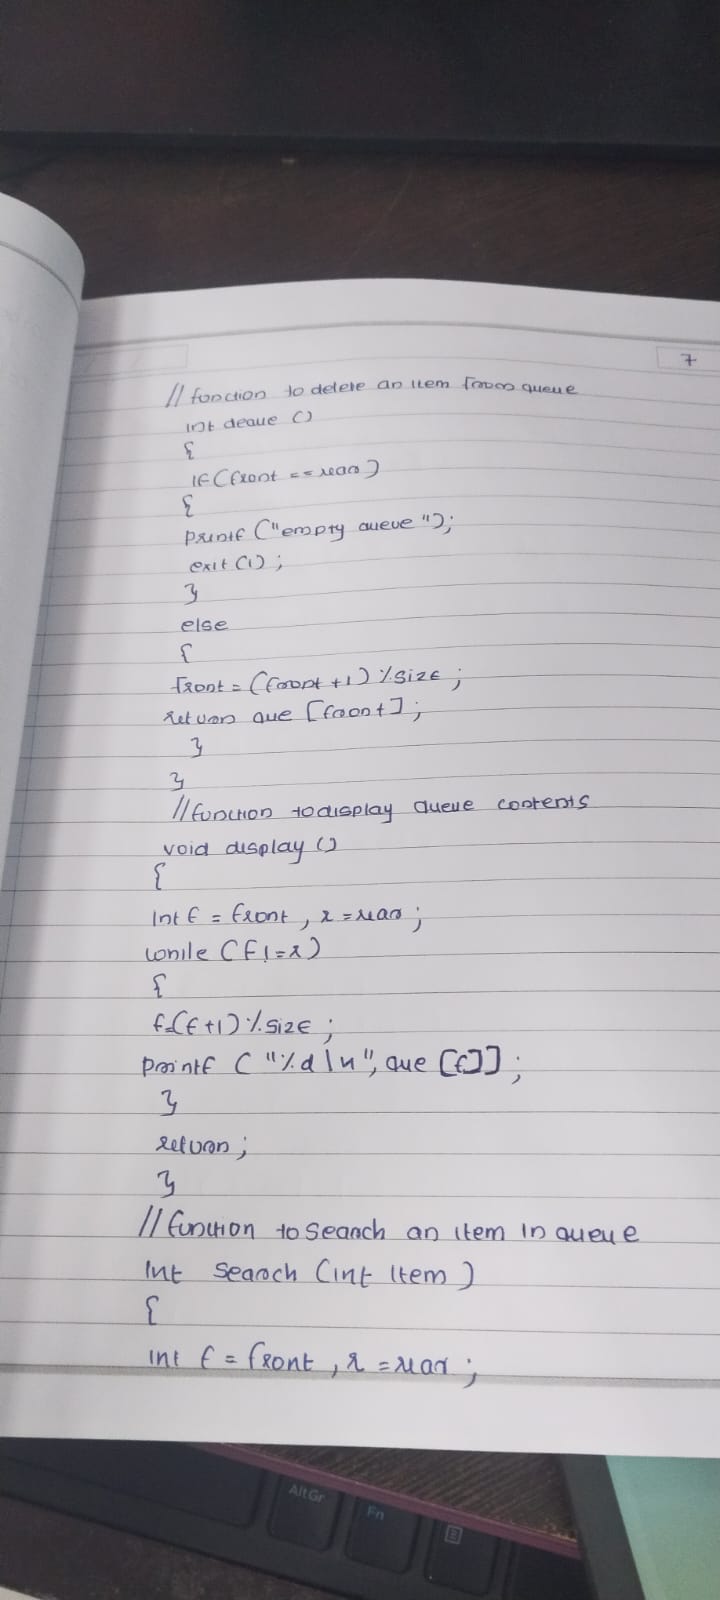 7
// function to delete an item from queue
int deque ()
{
if (front == rear)
{
printf ("empty queue");
exit (1) ;
}
else
{
front = (front +1) % size ;
return que [front] ;
}
}
// function to display queue contents
void display ()
{
int f = front , r = rear ;
while (f != r)
{
f=(f+1) % size ;
printf ("%d\n", que [f]] ;
}
return ;
}
// function to search an item in queue
int search (int item )
{
int f = front , r = rear ;
AltGr
Fn